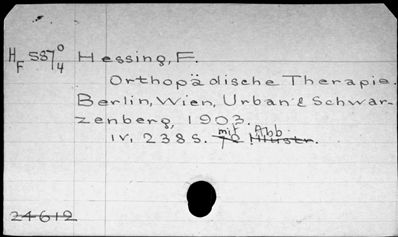 HF 587⁰₄ Hessing, F.
Orthopädische Therapie.
Berlin, Wien, Urban & Schwar-
zenberg, 1903.
IV, 238 S. mit Abb.
24612